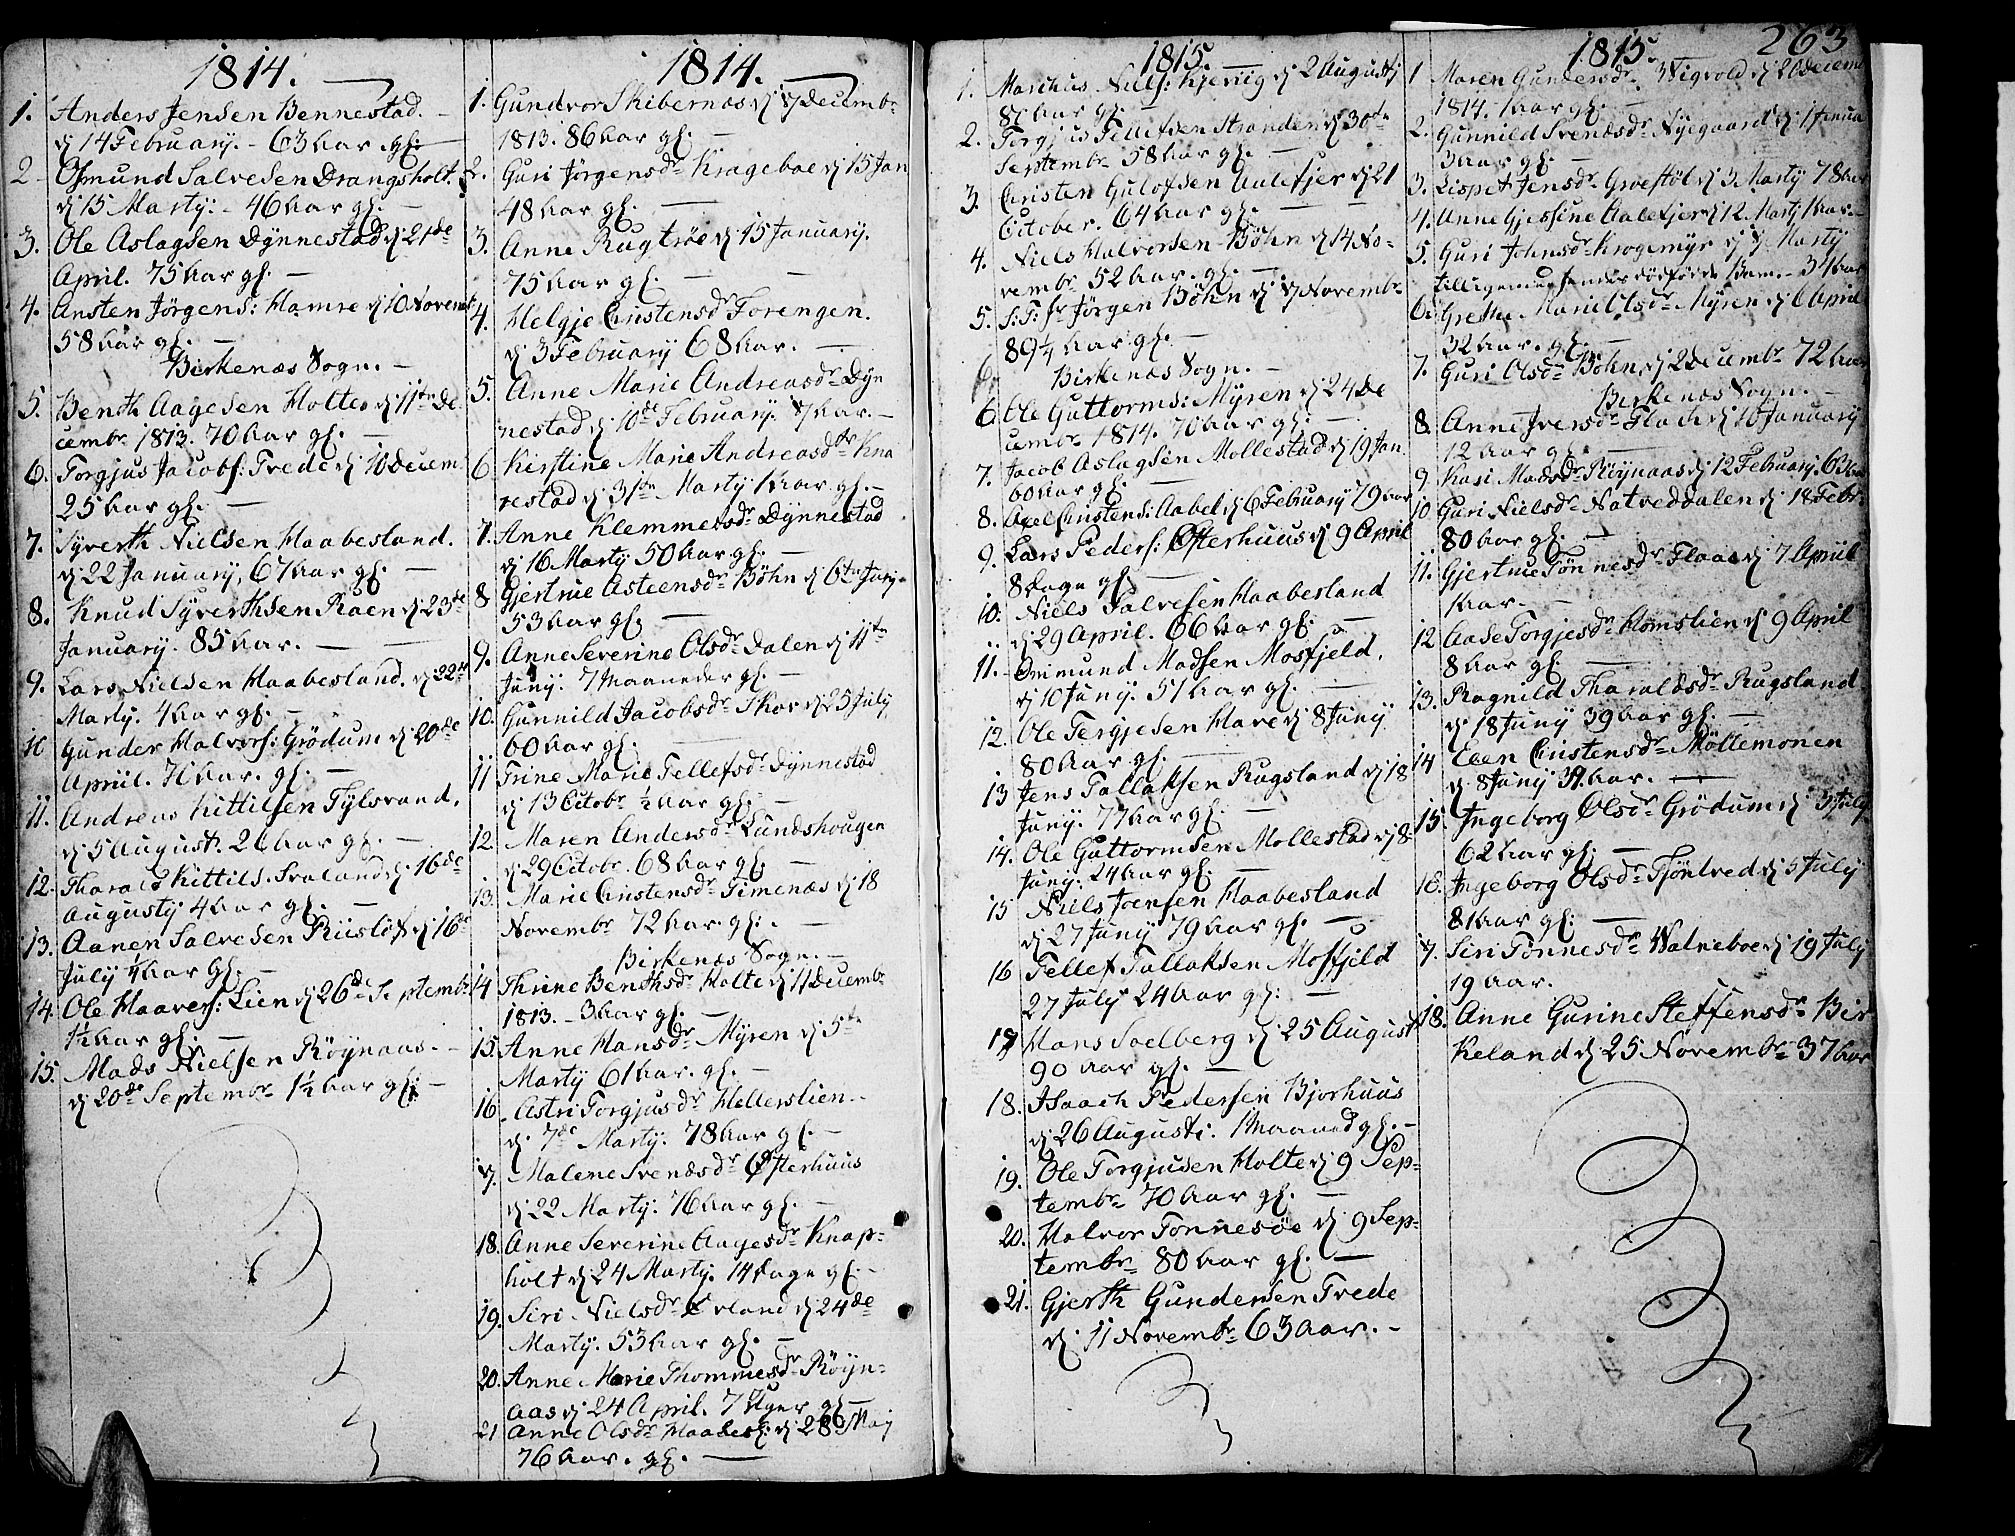 1814.
1. Anders Jensen Bennestad. -
d 14 February. - 63 Aar gl. -
2. Osmund Salvesen Drangsholt.
d 15 Marty: - 46 Aar gl. -
3. Ole Aslagsen Dÿnnestad d 21de
April. 75 Aar gl. -
4. Ansten Jørgens: Hamre d 10 Novemb
58 Aar gl. -
Birkenæs Sogn. -
5. Benth Aagesen Holte d 11te De
cembr 1813. 70 Aar gl. -
6. Torgjus Jacobs: Trede d 10 Decem.
25 Aar gl. -
7. Syverth Nielsen Haabesland.
d 22 January, 67 Aar gl. -
8. Knud Syverthsen Raen d 23de
January. 85 Aar. -
9. Lars Nielsen Haabesland. d 22de
Marty. 4 Aar gl. -
10 Gunder Halvors: Grødum d 20de
Apriil. 71 Aar. gl. -
11. Andreas Kittilsen Tÿlsvand.
d 5 August. 21 Aar gl. -
12. Tharald Kittils. Svaland d 16de
Augusty 4 Aar gl. -
13. Aanen Salvesen Riisløf d 16de
July ¼ Aar gl. -
14. Ole Haavers: Lien d 26de Septembr
1½ Aar gl. -
15. Mads Nielsen Røynaas. -
d 20de Septembr 1¼ Aar gl: -
1814.
1. Gundvor Skibernæs d 17 Decembr
1813. 86 Aar gl. -
2. Guri Jørgensdr Krageboe d 15 Jan
48 Aar gl. -
3. Anne Rugtrøe d 15 January.
75 Aar gl. -
4. Helgje Cristensd Forengen.
d 3 February 68 Aar. -
5. Anne Marie Andreasdr Dÿn
nestad d 10de February. 7 Aar. -
6 Kirstine Marie Andreasdr Kna
restad d 31te Marty 1 Aar gl. -
7. Anne Klemmersdr Dÿnnestad
d 16 Marty 50 Aar gl. -
8 Gjertrue Asteensdr Bøhn d 6te Juny
53 Aar gl. -
9. Anne Severine Olsdr Dalen d 11te
Juny. 7 Maaneder gl. -
10. Gunnild Jacobsdr Skor d 25 July
60 Aar gl. -
11 Trine Marie Tellefsdr Dÿnnestad
d 13 Octobr ½ Aar gl. -
12. Maren Andersdr Lundshougen
d 29 Octobr. 68 Aar gl. -
13. Marie Cristensdr Timenæs d 18
Novembr 72 Aar. gl: -
Birkenæs Sogn. -
14 Thrine Benthsdr Holte d 11 Decembr
1813. - 3 Aar gl. -
15 Anne Hansdr Myren d 5te
Marty 61 Aar. gl. -
16. Astri Torgjusdr Hellerslien. -
d. 7de Marty. 78 Aar gl. -
17. Malene Svenæsdr Østerhuus
d 22 Marty. 76 Aar gl. -
18. Anne Severine Aagesdr Knap-
holt d 24 Marty. 14 Dage gl. -
19. Siri Nielsdr Erland d 24de
Marty. 53 Aar gl. -
20. Anne Marie Thommesdr Røyn-
aas d 24 April. 7 Uger gl. -
21 Anne Olsdr Haabesl: d 28 Maj
76 Aar. gl. -
263
1815.
1. Marchus Niels: Kjevig d 2 Augusty
80 Aar gl. -
2. Torgjus Tellefsen Stranden d 30te
Septembr 58 Aar gl. -
3. Cristen Gulofsen Aalefjer d 21
October. 64 Aar gl. -
4. Niels Halvorsen Bøhn d 14 No-
vembr 52 Aar. gl. -
5. S: T: Hr Jørgen Bøhn d 17 Novembr
89¼ Aar gl. -
Birkenæs Sogn. -
6. Ole Guttorms: Mÿren d 24 De
cembr 1814. 70 Aar gl. -
7. Jacob Aslagsen Mollestad d 19 Jan.
60 Aar gl. -
8. Axel Cristens: Aabel d 6 February 79 Aar
9. Lars Peders: Østerhuus d 9 April
8 Dage gl. -
10. Niels Salvesen Haabesland
d 29 April. 66 Aar gl. -
11. Ommund Madsen Mosfjeld.
d 10 Juny. 51 Aar gl. -
12. Ole Tergjesen Hare d 8 Juny
80 Aar gl. -
13 Jens Tallaksen Rugsland d 18
Juny. 77 Aar gl. -
14. Ole Guttormsen Mollestad d 8
Juny. 24 Aar gl. -
15 Niels Joensen Haabesland
d 27 Juny 79 Aar gl. -
16 Tellef Tallaksen Mosfjeld
27 July 24 Aar gl: -
17 Hans Soelberg d 25 August
90 Aar gl. -
18. Isaach Pedersen Bjorhuus
d 26 Augusti. 1 Maaned gl. -
19. Ole Torgjusen Holte d 9 Sep-
tembr 70 Aar gl. -
20. Halvor Tønnesøe d 9 Sep-
tembr 80 Aar gl. -
21. Gjerth Gundersen Trede
d 11 Novembr 63 Aar. -
1815.
1 Maren Gundersdr Wigvold d 20 Decemb
1814. 1 Aar gl. -
2. Gunnild Svenæsdr Nÿegaard d 1 Janua
3 Aar gl. -
3. Lispet Jensdr Groestøl d 3 Marty 78 Aar
4. Anne Gjessine Aalefjer d 12 Marty 1 Aar. -
5. Guri Johnsdr Krogemyr d 17 Marty
tilligemed hendes dødfødde Barn. - 34 Aar
6. Grethe Marie Olsdr Mÿren d 6 April
32 Aar. gl. -
7. Guri Olsdr Bøhn d 2 Decembr 72 Aar
Birkenæs Sogn. -
8. Anne Iversdr Flach d 10 January
12 Aar gl. -
9 Kari Madsdr Røynaas d 12 February. 63 Aar
10 Guri Nielsdr Natveddalen d 18 Febr.
80 Aar gl. -
11. Gjertrue Tønnesdr Flaae d 7 Apriil
1 Aar. -
12 Aase Torgjesdr Homslien d 9 April
8 Aar gl. -
13. Ragnild Tharaldsdr Rugsland
d 18 Juny 39 Aar gl. -
14 Elen Cristensdr Møllemonen
d 8 Juny 31 Aar. -
15. Ingeborg Olsdr Grødum d 3 July
62 Aar gl. -
16. Ingeborg Olsdr Tjøntved d 5 July
81 Aar gl: -
17. Siri Tønnesdr Walneboe d 19 July
19 Aar.
18. Anne Gurine Steffensdr Bir
keland d 25 Novembr 37 Aar